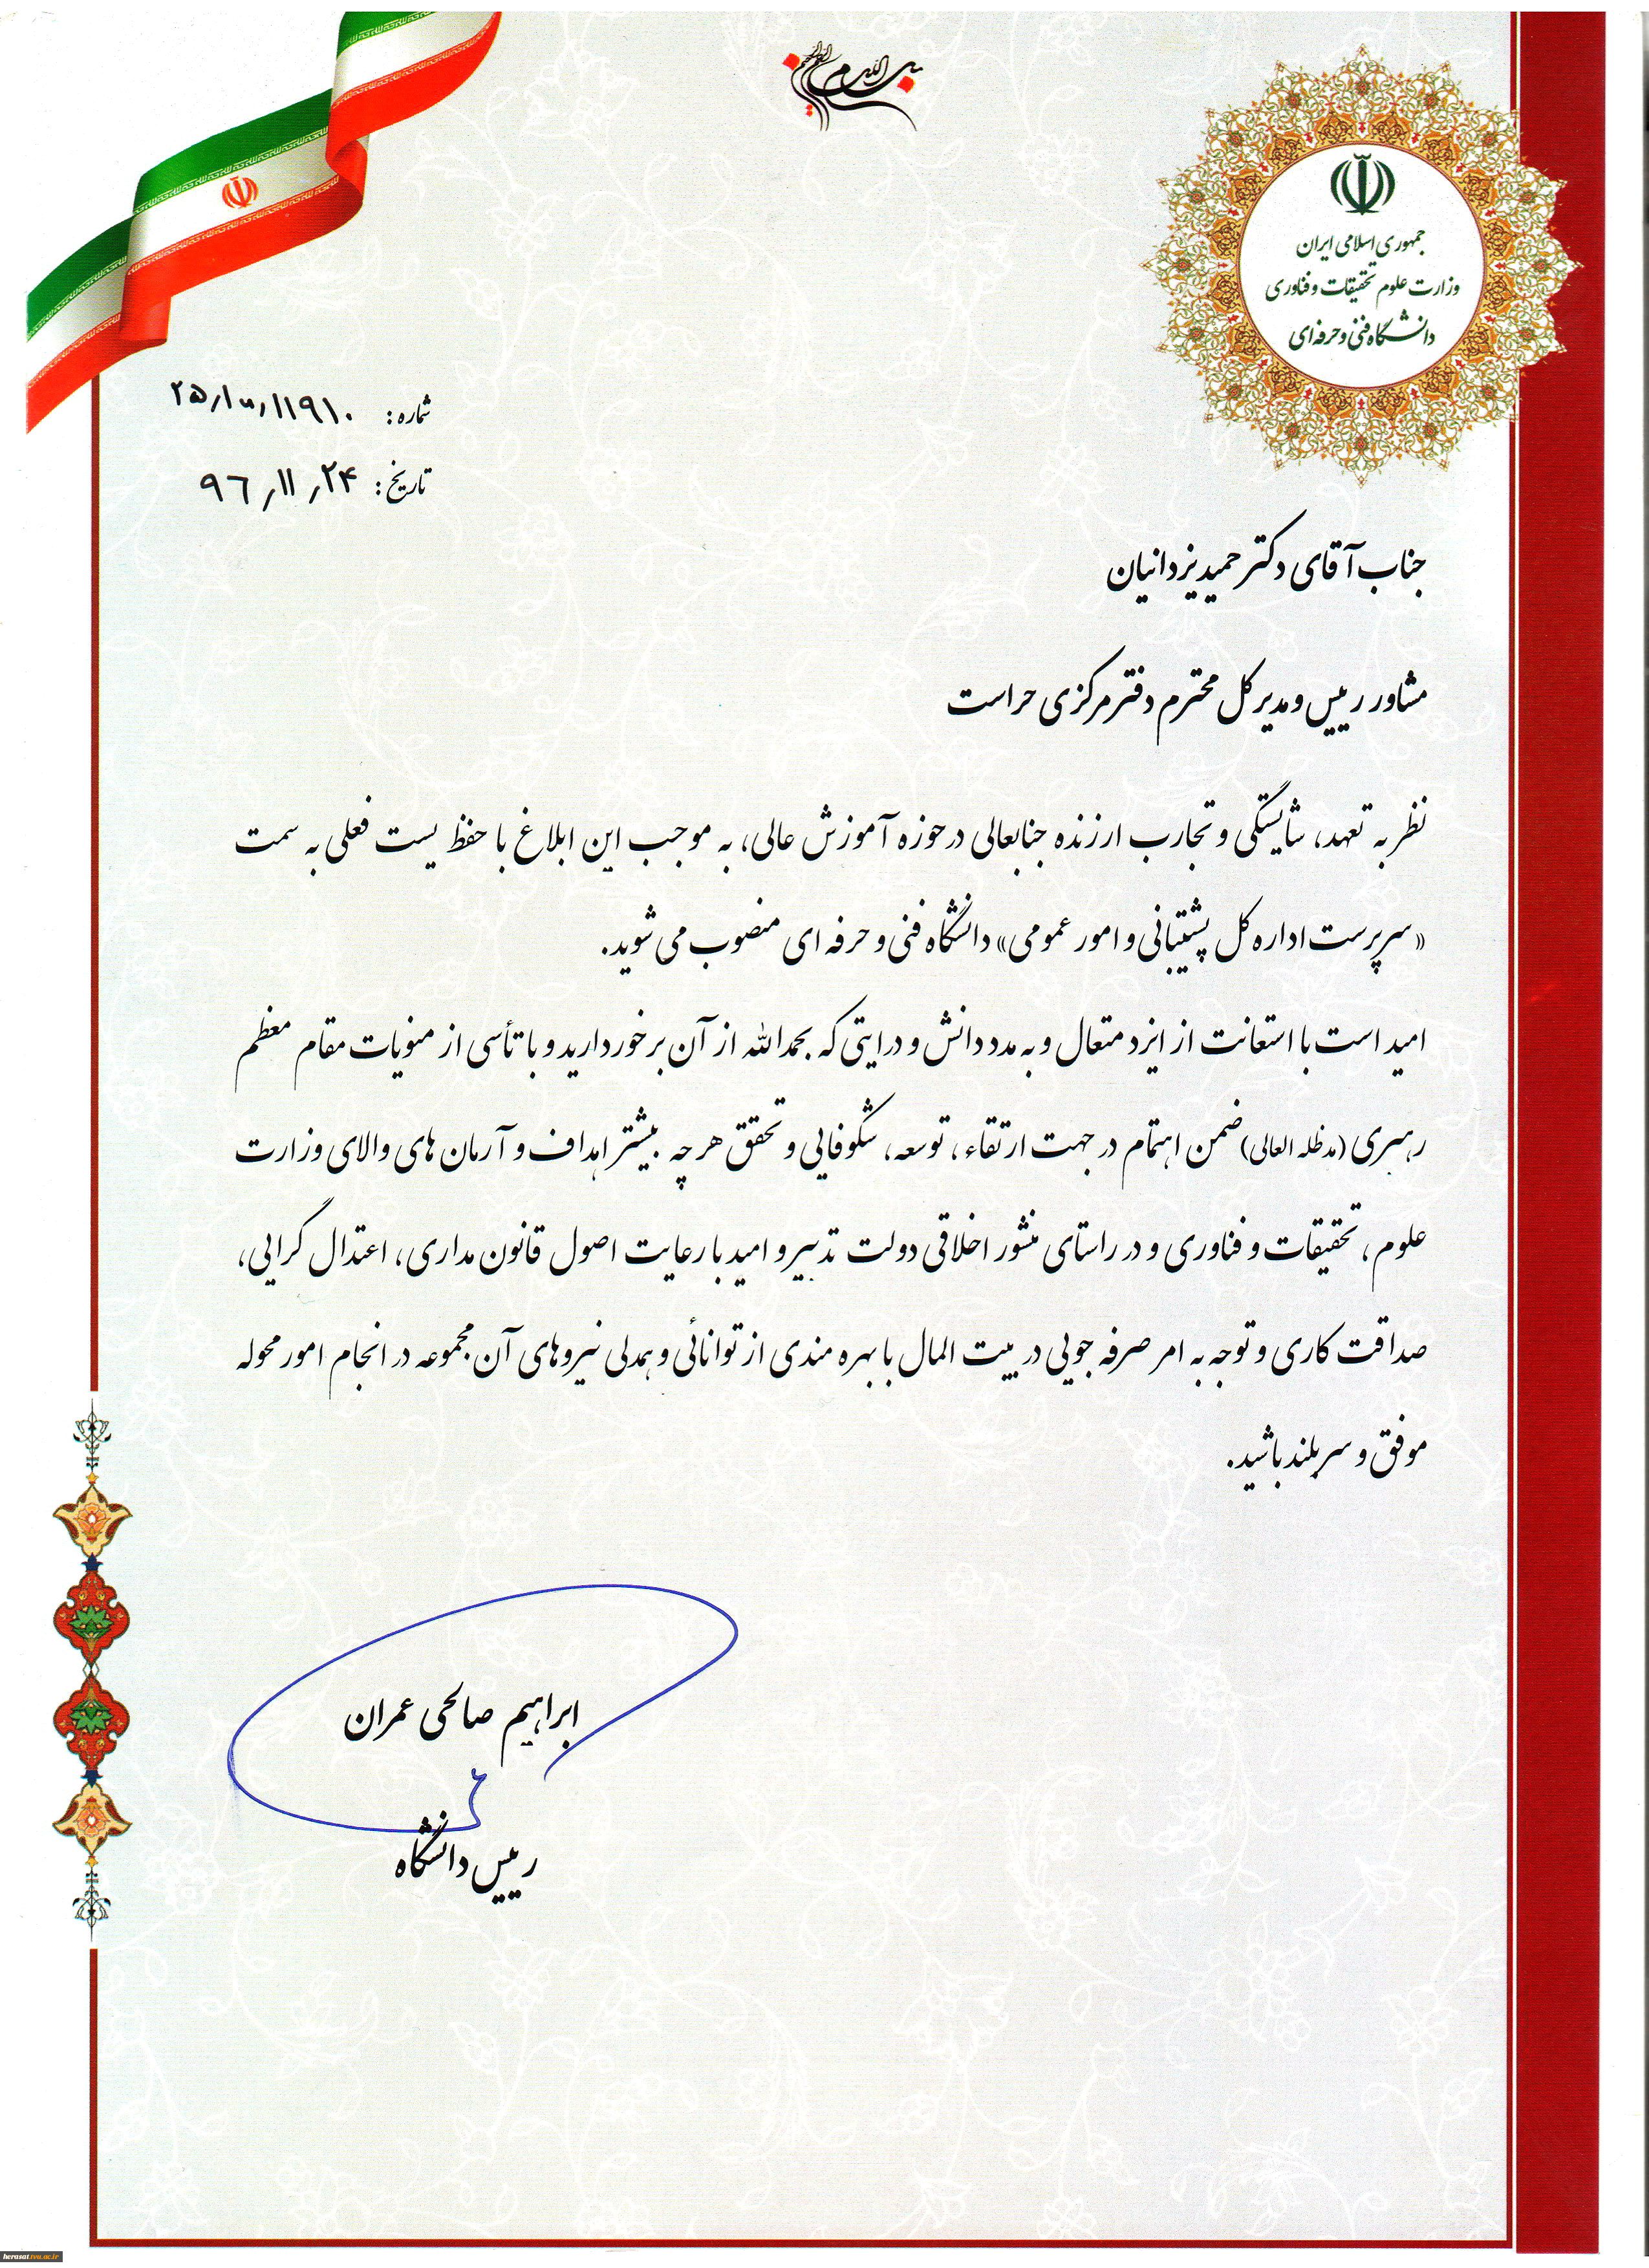 بسم الله الرحمن الرحیم
جمهوری اسلامی ایران
وزارت علوم تحقیقات و فناوری
دانشگاه فنی و حرفه‌ای
شماره:
تاریخ: ۹۶٫۱۱٫۲۴
جناب آقای دکتر حمید یزدانیان
مشاور رییس و مدیرکل محترم دفتر مرکزی حراست
نظر به تعهد، شایستگی و تجارب ارزنده جنابعالی در حوزه آموزش عالی، به موجب این ابلاغ با حفظ پست فعلی به سمت
«سرپرست اداره کل پشتیبانی و امور عمومی» دانشگاه فنی و حرفه ای منصوب می شوید.
امید است با استعانت از ایزد متعال و به مدد دانش و درایتی که بحمدالله از آن برخوردارید و با تأسی از منویات مقام معظم
رهبری (مدظله العالی) ضمن اهتمام در جهت ارتقاء، توسعه، شکوفایی و تحقق هر چه بیشتر اهداف و آرمان های والای وزارت
علوم، تحقیقات و فناوری و در راستای منشور اخلاقی دولت تدبیر و امید با رعایت اصول قانون مداری، اعتدال گرایی،
صداقت کاری و توجه به امر صرفه جویی در بیت المال با بهره مندی از توانائی و همدلی نیروهای آن مجموعه در انجام امور محوله
موفق و سربلند باشید.
ابراهیم صالحی عمران
رییس دانشگاه
herasat.tvu.ac.ir